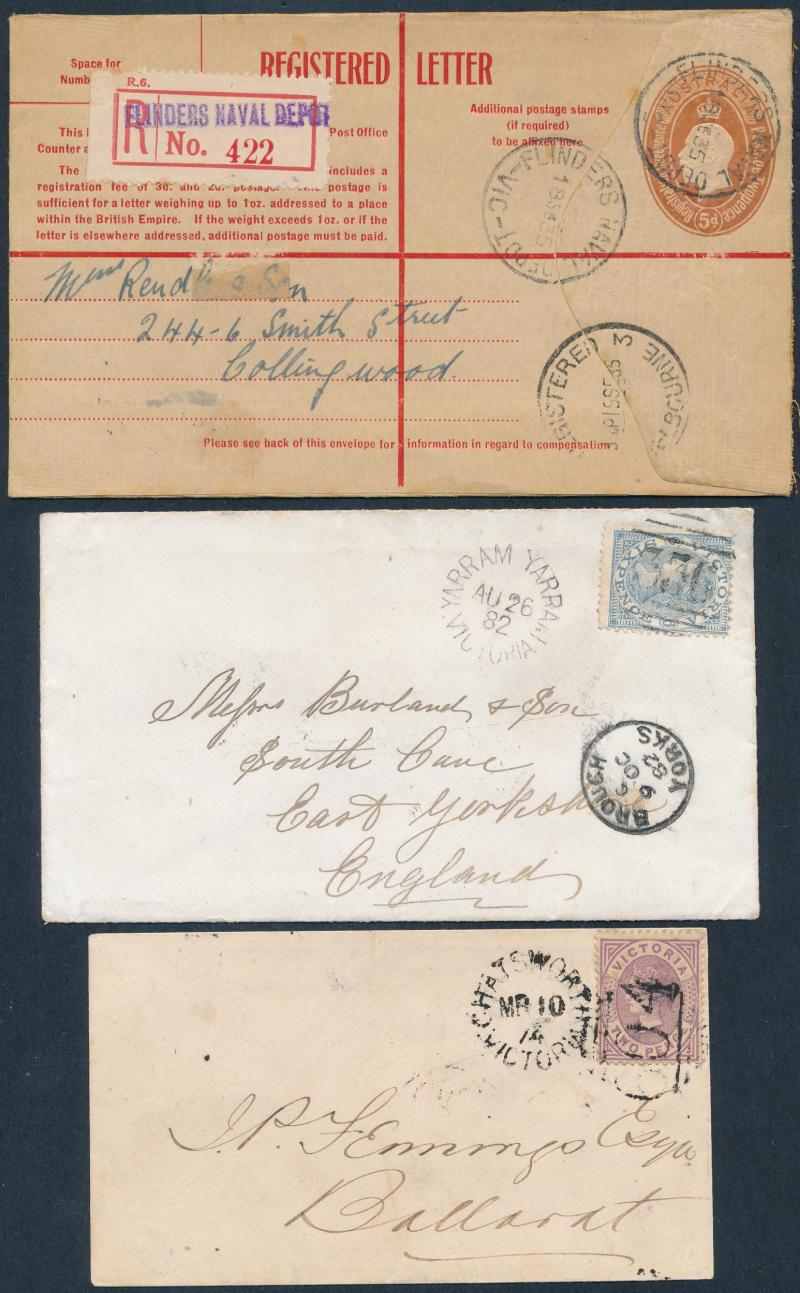 Space for
Number
REGISTERED LETTER
R.6.
FLINDERS NAVAL DEPOT
R No. 422
Additional postage stamps
(if required)
to be affixed here
This
Post Office
Counter
The
includes a
registration fee of 3d. and 2d. postage. The postage is
sufficient for a letter weighing up to 1oz. addressed to a place
within the British Empire. If the weight exceeds 1oz. or if the
letter is elsewhere addressed, additional postage must be paid.
FLINDERS NAVAL DEPOT-VIC
18SE35
FLINDERS NAVAL DEPOT
5d
Messrs Rend & Son
244-6 Smith Street
Collingwood
REGISTERED 3 MELBOURNE
19SE35
Please see back of this envelope for information in regard to compensation
YARRAM YARRAM
AU 26
82
VICTORIA
VICTORIA
SIXPENCE
Messrs Burland & Son
South Cave
East Yorkshire
England
BROUGH
YORKS
OC 9
82
CHATSWORTH
MR 10
74
VICTORIA
VICTORIA
TWO PENCE
J.P. Fennings Esqre
Ballarat